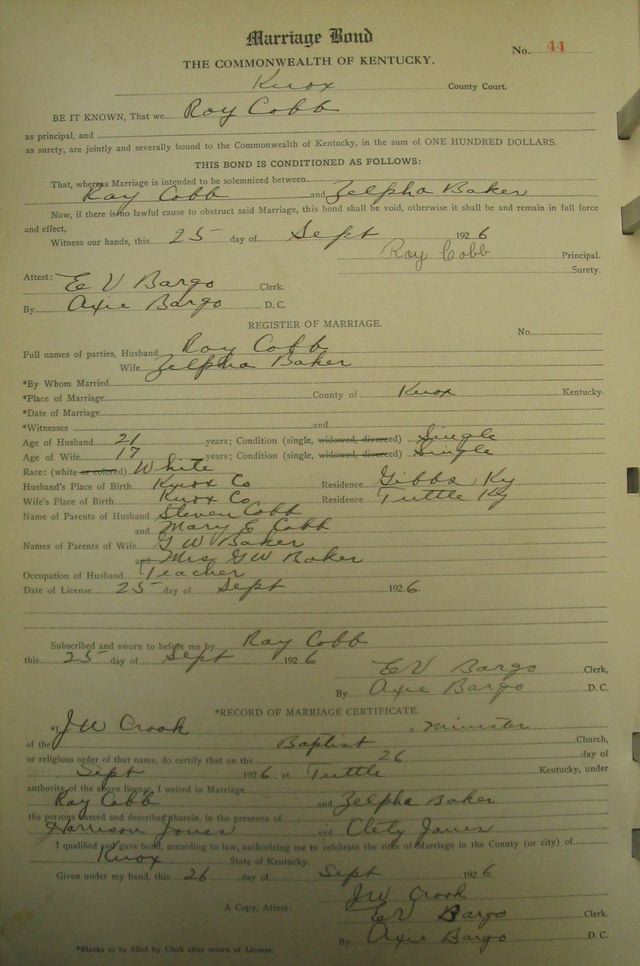 Marriage Bond
No. 44
THE COMMONWEALTH OF KENTUCKY.
Knox County Court.
BE IT KNOWN, That we Roy Cobb
as principal, and
as surety, are jointly and severally bound to the Commonwealth of Kentucky, in the sum of ONE HUNDRED DOLLARS.
THIS BOND IS CONDITIONED AS FOLLOWS:
That, whereas Marriage is intended to be solemnized between
Ray Cobb and Zelpha Baker
Now, if there is no lawful cause to obstruct said Marriage, this bond shall be void, otherwise it shall be and remain in full force
and effect,
Witness our hands, this 25 day of Sept 1926
Roy Cobb Principal.
Surety.
Attest: E V Bargo Clerk.
By Axie Bargo D.C.
REGISTER OF MARRIAGE.
No.
Full names of parties, Husband Roy Cobb
Wife Zelpha Baker
*By Whom Married
*Place of Marriage County of Knox Kentucky.
*Date of Marriage
*Witnesses and
Age of Husband 21 years; Condition (single, widowed, divorced) Single
Age of Wife 17 years; Condition (single, widowed, divorced) Single
Race: (white or colored) White
Husband's Place of Birth Knox Co Residence Gibbs Ky
Wife's Place of Birth Knox Co Residence Tuttle Ky
Name of Parents of Husband Steven Cobb
and Mary E Cobb
Names of Parents of Wife G W Baker
and Mrs GW Baker
Occupation of Husband Teacher
Date of License 25 day of Sept 1926.
Subscribed and sworn to before me by Ray Cobb
this 25 day of Sept 1926
E V Bargo Clerk,
By Axie Bargo D.C.
*RECORD OF MARRIAGE CERTIFICATE.
*I JW Crook, Minister
of the Baptist Church,
or religious order of that name, do certify that on the 26 day of
Sept 1926. at Tuttle Kentucky, under
authority of the above license, I united in Marriage
Ray Cobb and Zelpha Baker
the persons named and described therein, in the presence of
Harrison Jones and Clety Jones
I qualified and gave bond, according to law, authorizing me to celebrate the rites of Marriage in the County (or city) of
Knox State of Kentucky.
Given under my hand, this 26 day of Sept 1926.
JW Crook
A Copy, Attest: EV Bargo Clerk.
By Axie Bargo D.C.
*Blanks to be filled by Clerk after return of License.